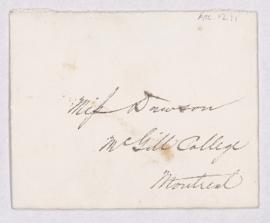 Miſs Dawson
McGill College
Montreal